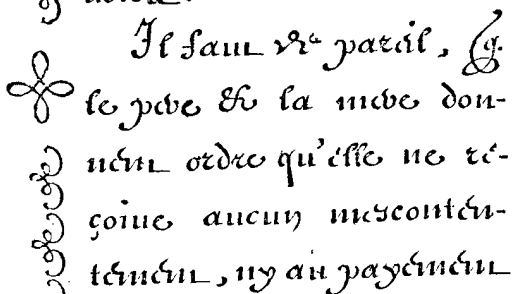 Il faut de pareil, q.
le pere & la mere don-
nent ordre qu'elle ne re-
çoiue aucun mesconten-
tement, ny au payement